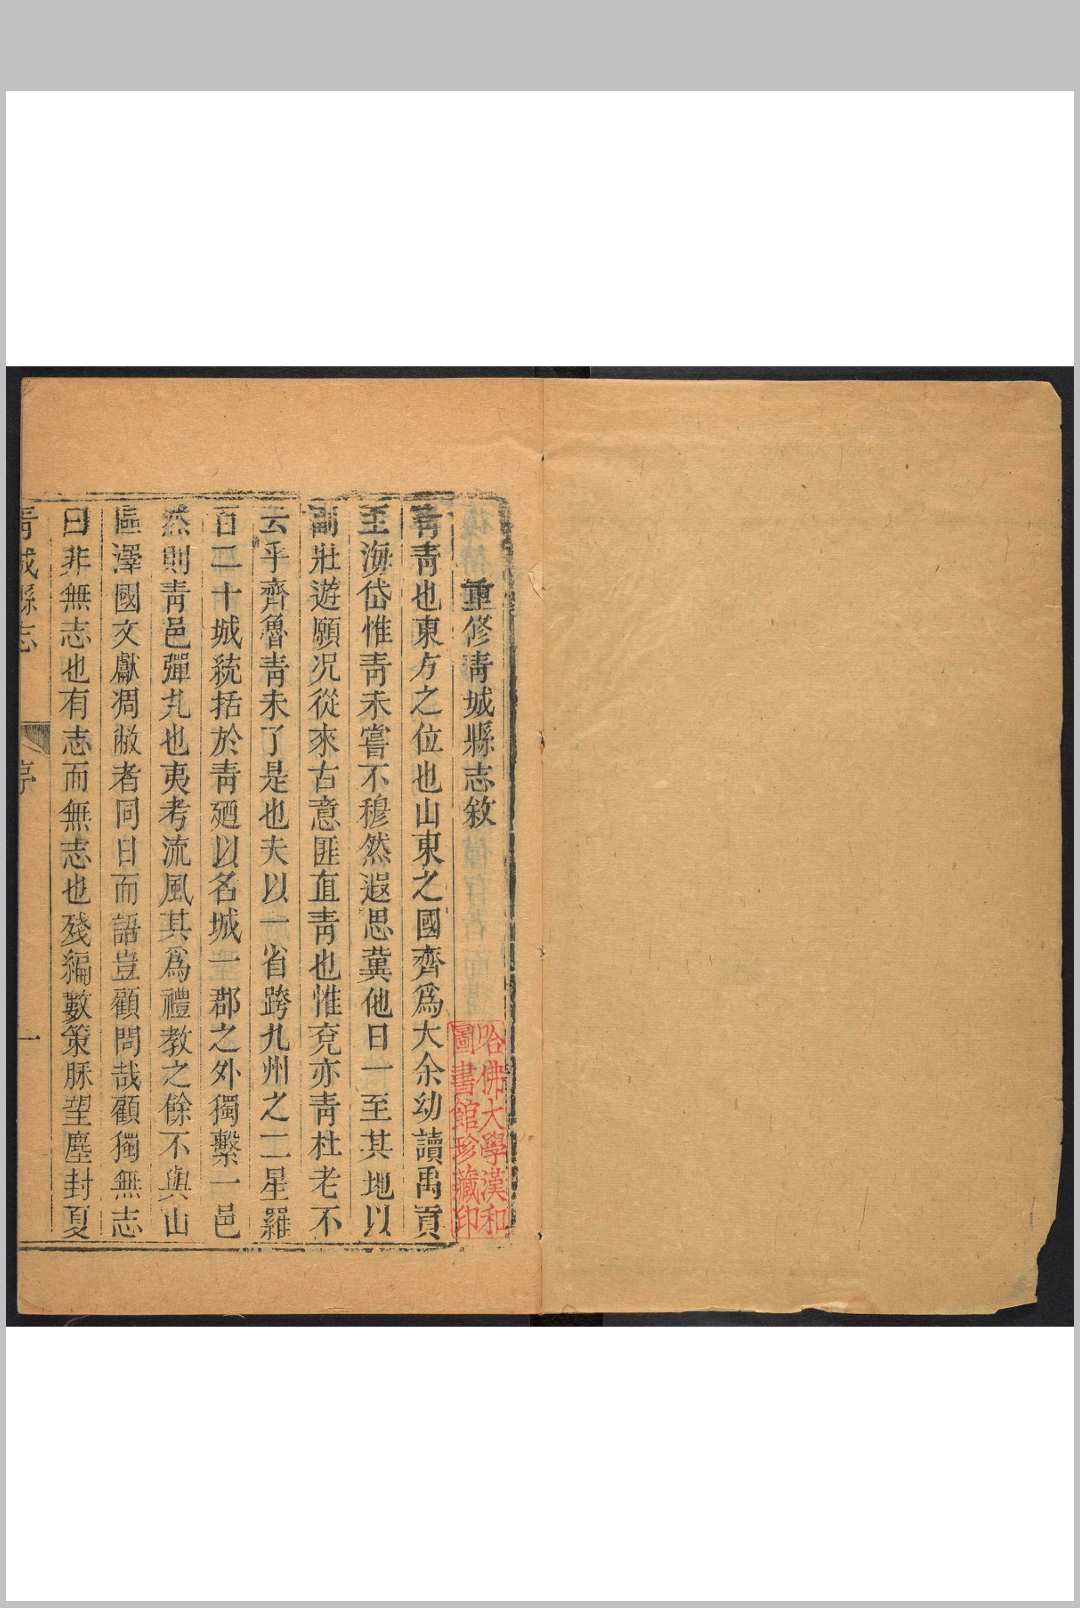 重修靑城縣志敘
靑靑也東方之位也山東之國齊爲大余幼讀禹貢
至海岱惟靑未嘗不穆然遐思冀他日一至其地以
副壯遊願況從來古意匪直靑也惟兗亦靑杜老不
云乎齊魯靑未了是也夫以一省跨九州之二星羅
百二十城統括於靑廼以名城一郡之外獨繫一邑
然則靑邑彈丸也夷考流風其爲禮教之餘不與山
區澤國文獻凋敝者同日而語豈顧問哉顧獨無志
曰非無志也有志而無志也殘編數策脈望塵封夏
靑城縣志
序
一
哈佛大學漢和
圖書館珍藏印